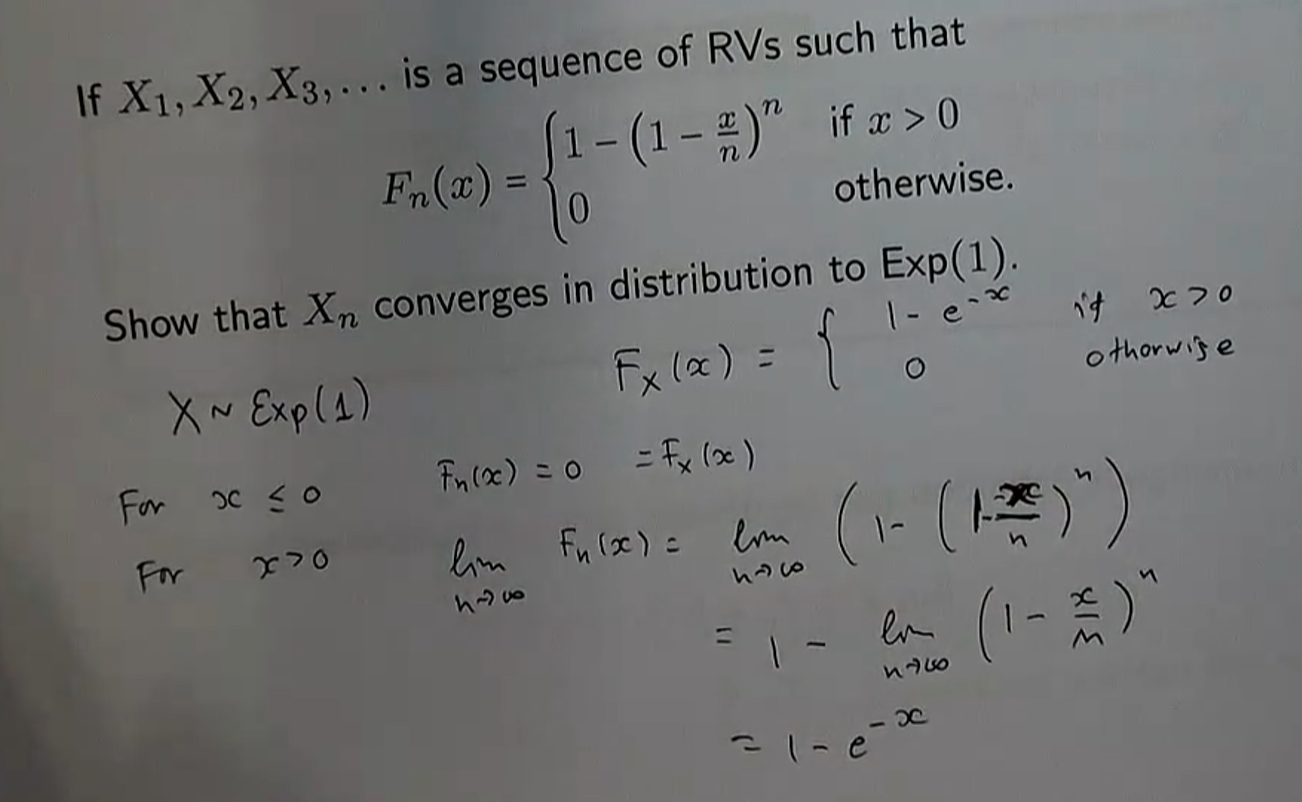 If X₁, X₂, X₃, ... is a sequence of RVs such that
Fₙ(x) = { 1 − (1 − x/n)ⁿ if x > 0
0 otherwise.
Show that Xₙ converges in distribution to Exp(1).
X ~ Exp(1) F_X(x) = { 1 - e^{-x} if x > 0
0 othorwise
For x ≤ 0 Fₙ(x) = 0 = F_X(x)
For x > 0 lim n→∞ Fₙ(x) = lim n→∞ (1 - (1 - x/n)ⁿ)
= 1 - lim n→∞ (1 - x/n)ⁿ
= 1 - e^{-x}